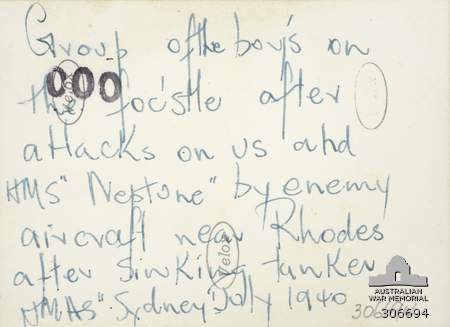 Group of the boy's on
the foc'stle after
000
Velox
attacks on us and
HMS "Neptune" by enemy
aircraft near Rhodes
Velox
after sinking tanker
HMAS "Sydney" July 1940
AUSTRALIAN
WAR MEMORIAL
306694